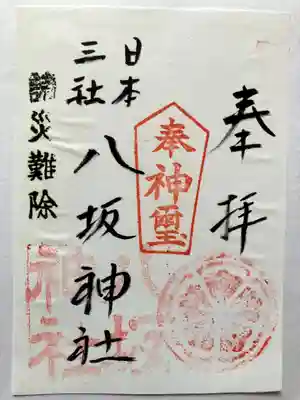 奉拝
奉
神璽
日本
三社
八坂神社
諸災難除
神社